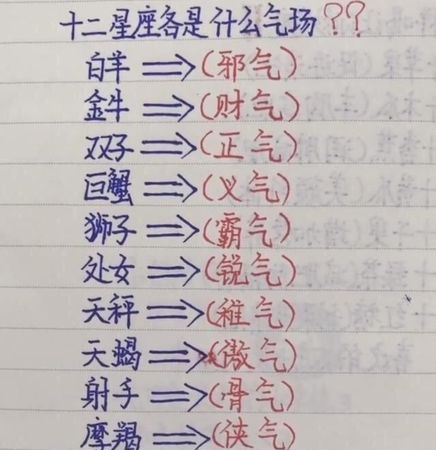 十二星座各是什么气场??
白羊⇒(邪气)
金牛⇒(财气)
双子⇒(正气)
巨蟹⇒(义气)
狮子⇒(霸气)
处女⇒(锐气)
天秤⇒(稚气)
天蝎⇒(傲气)
射手⇒(骨气)
摩羯⇒(侠气)